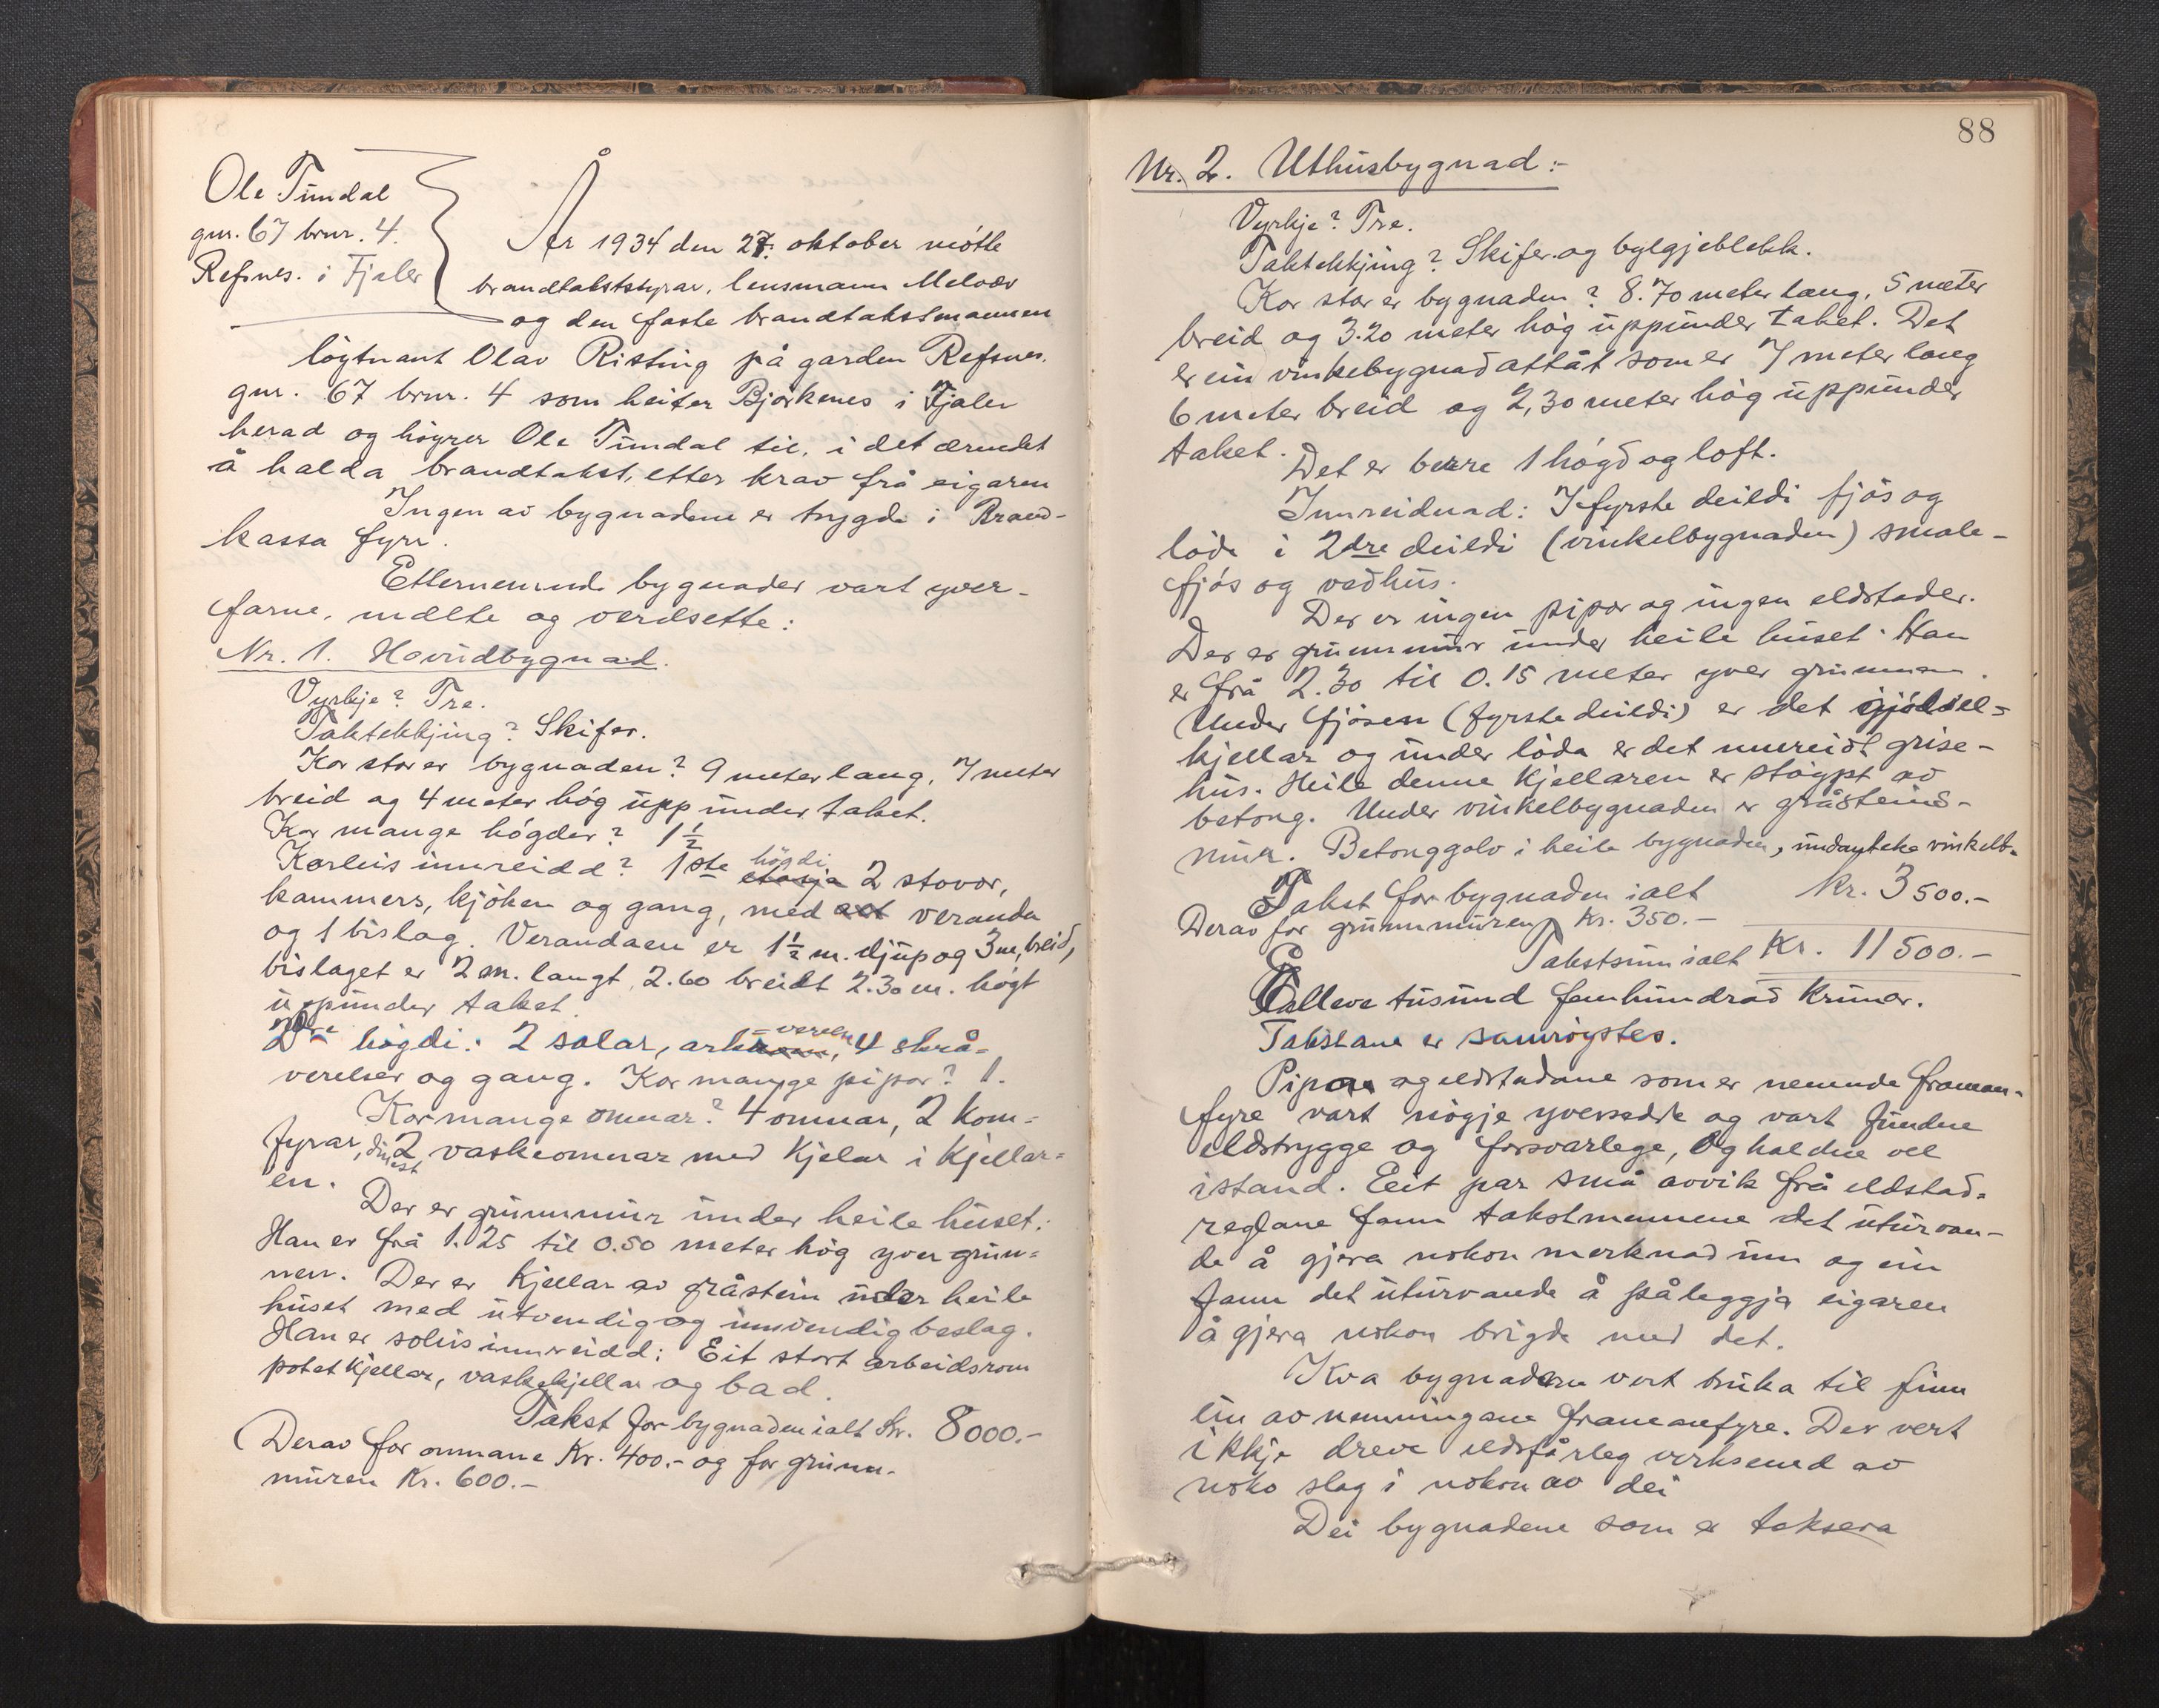 Ole Tundal
gnr. 67 brnr. 4.
Refsnes. i Fjaler
År 1934 den 27. oktober møtte
brandtakststyrar, lensmann Melvær
og den faste brandtakstmannen
løytnant Olav Risting på garden Refsnes.
gnr. 67 brnr. 4 som heiter Bjørkenes i Fjaler
herad og høyrer Ole Tundal til, i det ærendet
å halda brandtakst, etter krav frå eigaren
Ingen av bygnadene er trygde i Brand-
kassa fyrr.
Etternemnde bygnader vart yver-
farne, mælte og verdsette:
Nr. 1. Hovudbygnad.
Vyrkje? Tre.
Taktekkjing? Skifer.
Kor stor er bygnaden? 9 meter lang, 7 meter
breid og 4 meter høg upp under taket.
Kor mange høgder? 1½
Korleis innreidd? 1ste etasja høgdi 2 stovor,
kammers, kjøken og gang, med veranda
og 1 bislag. Verandaen er 1½ m. djup og 3 m, breid,
bislaget er 2 m. langt, 2.60 breidt 2.30 m. høgt
uppunder taket.
2dre høgdi: 2 salar, ark-verelse, 4 skrå-
verelser og gang. Kor mange pipor? 1.
Kor mange omnar? 4 omnar, 2 kom-
fyrar, dinest 2 vaskeomnar med kjelar i kjellar-
en.
Der er grunnmur under heile huset.
Han er frå 1.25 til 0.50 meter høg yver grun-
nen. Der er kjellar av gråstein under heile
huset med utvendig og innvendig beslag.
Han er soleis innreidd: Eit stort arbeidsrom
potetkjellar, vaskekjellar og bad.
Takst for bygnaden ialt Kr. 8000.-
Derav for omnane Kr. 400.- og for grunn-
muren Kr. 600.-
88
Nr. 2. Uthusbygnad:-
Vyrkje? Tre.
Taktekkjing? Skifer og bylgjeblekk.
Kor stor er bygnaden? 8.70 meter lang, 5 meter
breid og 3.20 meter høg uppunder taket. Det
er ein vinkebygnad attåt som er 7 meter lang
6 meter breid og 2,30 meter høg uppunder
taket.
Det er berre 1 høgd og loft.
Innreidnad: I fyrste deildi fjøs og
løde i 2dre deildi (vinkelbygnaden) smale-
fjøs og vedhus.
Der er ingen pipor og ingen eldstader.
Der er grunnmur under heile huset. Han
er frå 2.30 til 0.15 meter yver grunnen.
Under fjøsen (fyrste deildi) er det gjødsel-
kjellar og under løda er det innreidt grise-
hus. Heile denne kjellaren er støypt av
betong. Under vinkelbygnaden er gråsteins-
mur. Betonggolv i heile bygnaden, undanteke vinkelb.
Takst for bygnaden ialt Kr. 3500.-
Derav for grunnmuren Kr. 350.-
Takstsum ialt Kr. 11500.-
Elleve tusund femhundrad krunor.
Takstane er samrøystes.
Pipone og eldstadane som er nemnde framan-
fyre vart nøgje yversedde og vart fundne
eldstrygge og forsvarlege, og haldne vel
istand. Eit par små avvik frå eldstad-
reglane fann takstmennene det uturvan-
de å gjera nokon merknad um og ein
fann det uturvande å påleggja eigaren
å gjera nokon brigde med det.
Kva bygnadene vert bruka til finn
ein av nemningane framanfyre. Der vert
ikkje dreve eldsfårleg verksemd av
noko slag i nokon av dei
Dei bygnadene som er taksera